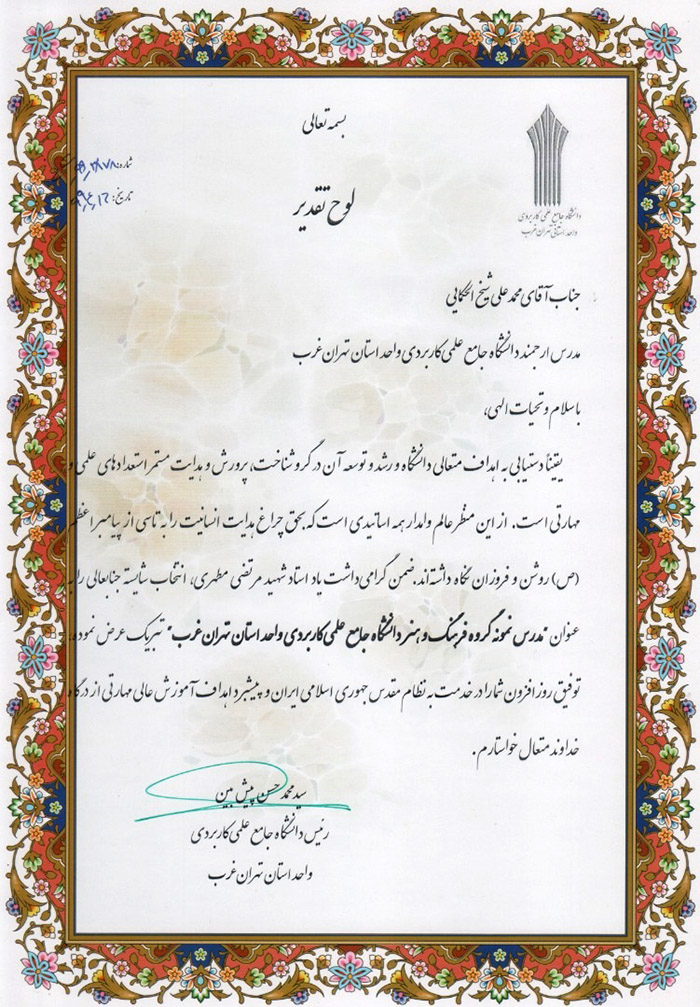 بسمه تعالی
دانشگاه جامع علمی کاربردی
واحد استانی تهران غرب
شماره:
تاریخ:
لوح تقدیر
جناب آقای محمد علی شیخ الحکمایی
مدرس ارجمند دانشگاه جامع علمی کاربردی واحد استان تهران غرب
با سلام و تحیات الهی،
یقینا دستیابی به اهداف متعالی دانشگاه و رشد و توسعه آن در گرو شناخت، پرورش و هدایت مستمر استعدادهای علمی و
مهارتی است. از این منظر عالم وامدار همه اساتیدی است که بحق چراغ هدایت انسانیت را به تاسی از پیامبر اعظم
(ص) روشن و فروزان نگاه داشته‌اند. ضمن گرامی داشت یاد استاد شهید مرتضی مطهری، انتخاب شایسته جنابعالی را به
عنوان "مدرس نمونه گروه فرهنگ و هنر دانشگاه جامع علمی کاربردی واحد استان تهران غرب" تبریک عرض نموده،
توفیق روز افزون شما را در خدمت به نظام مقدس جمهوری اسلامی ایران و پیشبرد اهداف آموزش عالی مهارتی از درگاه
خداوند متعال خواستارم.
سید محمد حسن پیش بین
رئیس دانشگاه جامع علمی کاربردی
واحد استان تهران غرب